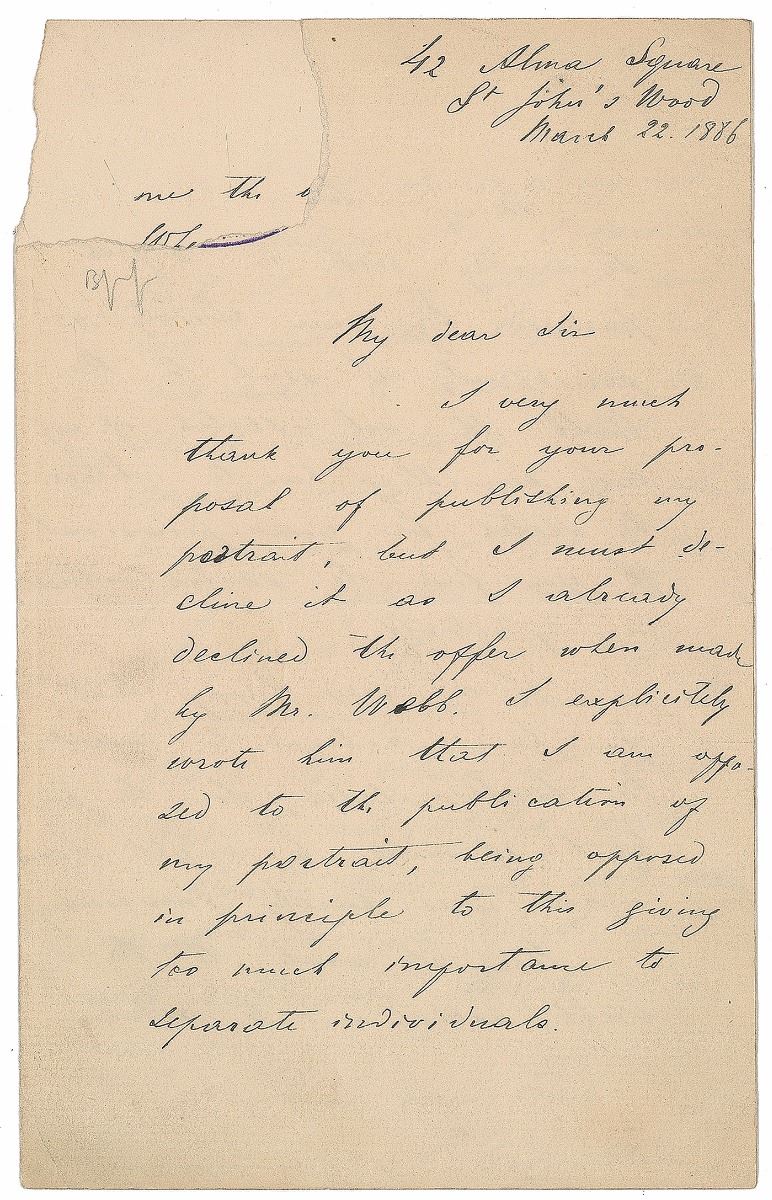 42 Alma Square
St John's Wood
March 22. 1886
me the
My dear Sir
I very much
thank you for your pro-
posal of publishing my
portrait, but I must de-
cline it as I already
declined the offer when made
by Mr. Webb. I explicitely
wrote him that I am oppo-
sed to the publication of
my portrait, being opposed
in principle to this giving
too much importance to
separate individuals.